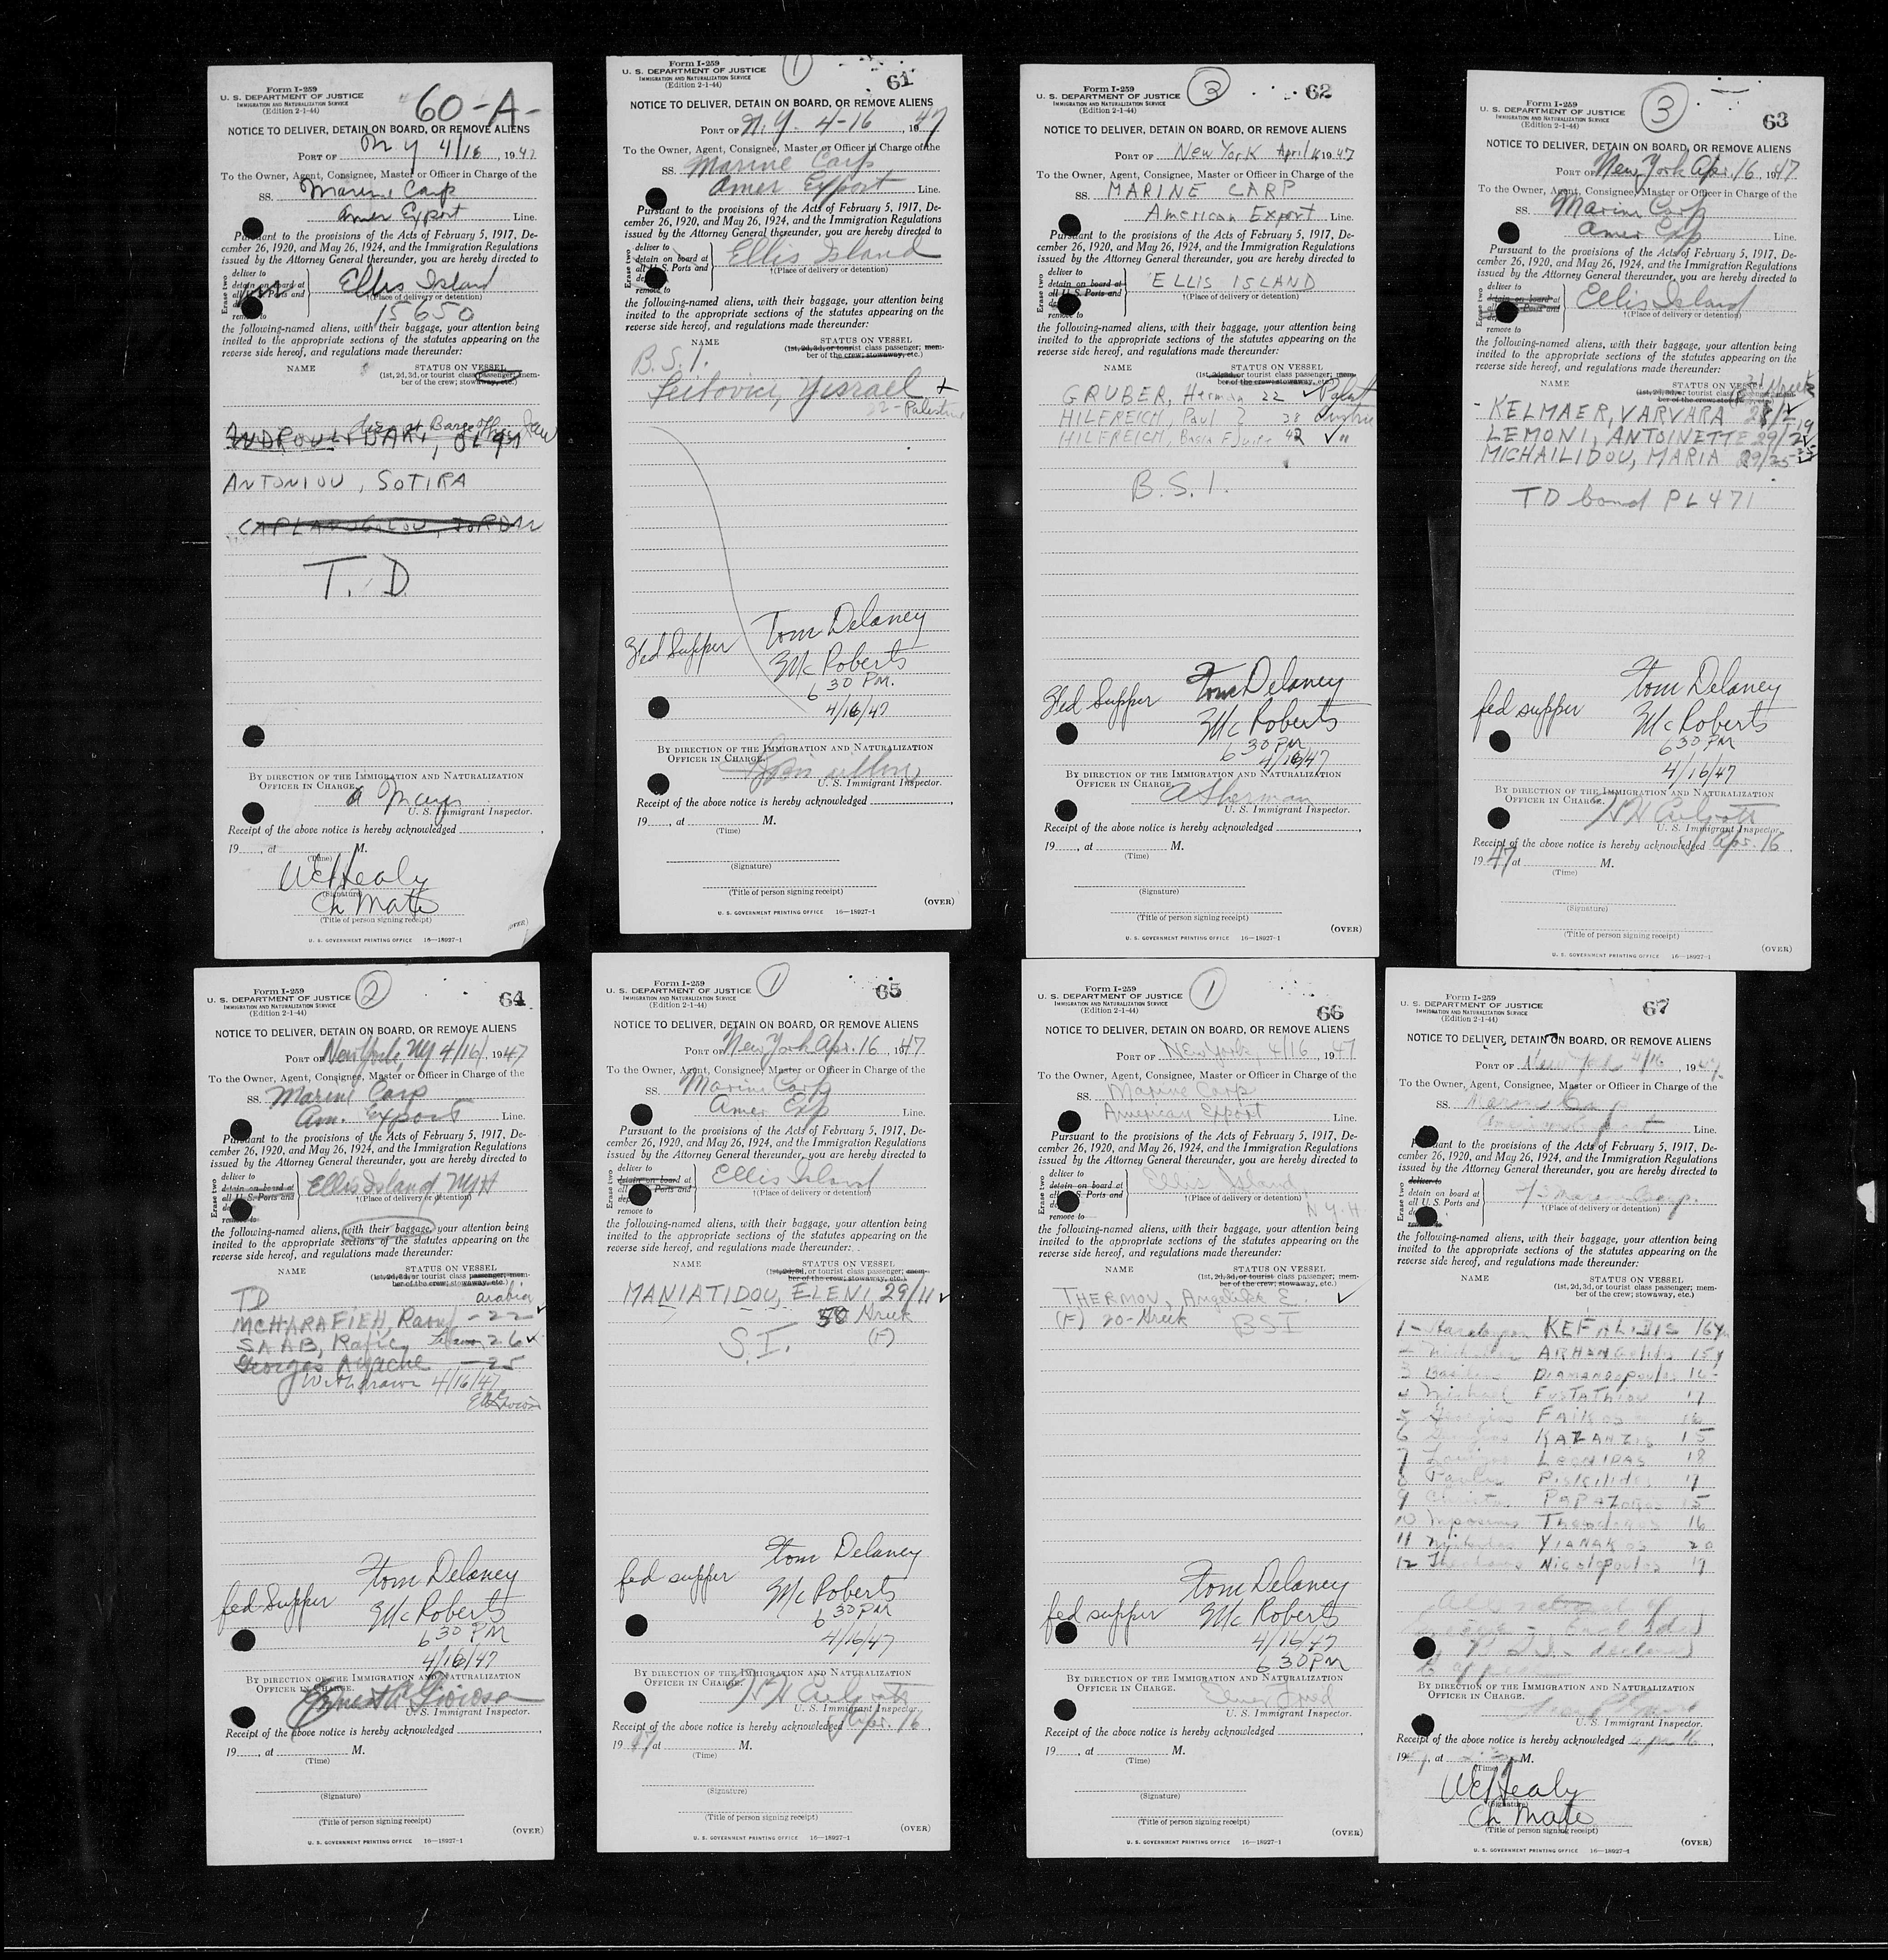 Form I-259
U. S. DEPARTMENT OF JUSTICE
IMMIGRATION AND NATURALIZATION SERVICE
(Edition 2-1-44)
60-A-
NOTICE TO DELIVER, DETAIN ON BOARD, OR REMOVE ALIENS
PORT OF N Y 4/16, 1947
To the Owner, Agent, Consignee, Master or Officer in Charge of the
SS. Marine Carp
Amer Export Line.
Pursuant to the provisions of the Acts of February 5, 1917, De-
cember 26, 1920, and May 26, 1924, and the Immigration Regulations
issued by the Attorney General thereunder, you are hereby directed to
Erase two
deliver to
detain on board at
all U. S. Ports and
remove to
Ellis Island
†(Place of delivery or detention)
15650
the following-named aliens, with their baggage, your attention being
invited to the appropriate sections of the statutes appearing on the
reverse side hereof, and regulations made thereunder:
NAME STATUS ON VESSEL
(1st, 2d, 3d, or tourist class passenger; mem-
ber of the crew; stowaway, etc.)
ANTONIOU, SOTIRA
T. D
BY DIRECTION OF THE IMMIGRATION AND NATURALIZATION
OFFICER IN CHARGE.
U. S. Immigrant Inspector.
Receipt of the above notice is hereby acknowledged
19, at M.
(Time)
W C Healy
(Signature)
Ch Mate
(Title of person signing receipt)
(OVER)
U. S. GOVERNMENT PRINTING OFFICE 16—18927-1
Form I-259
U. S. DEPARTMENT OF JUSTICE
IMMIGRATION AND NATURALIZATION SERVICE
(Edition 2-1-44)
1
61
NOTICE TO DELIVER, DETAIN ON BOARD, OR REMOVE ALIENS
PORT OF N.Y. 4-16, 1947
To the Owner, Agent, Consignee, Master or Officer in Charge of the
SS. Marine Carp
Amer Export Line.
Pursuant to the provisions of the Acts of February 5, 1917, De-
cember 26, 1920, and May 26, 1924, and the Immigration Regulations
issued by the Attorney General thereunder, you are hereby directed to
Erase two
deliver to
detain on board at
all U. S. Ports and
remove to
Ellis Island
†(Place of delivery or detention)
the following-named aliens, with their baggage, your attention being
invited to the appropriate sections of the statutes appearing on the
reverse side hereof, and regulations made thereunder:
NAME STATUS ON VESSEL
(1st, 2d, 3d, or tourist class passenger; mem-
ber of the crew; stowaway, etc.)
B.S.I.
Yisrael
22-Palestine
fed Supper Tom Delaney
McRoberts
6 30 PM.
4/16/47
BY DIRECTION OF THE IMMIGRATION AND NATURALIZATION
OFFICER IN CHARGE.
U. S. Immigrant Inspector.
Receipt of the above notice is hereby acknowledged
19, at M.
(Time)
(Signature)
(Title of person signing receipt)
(OVER)
U. S. GOVERNMENT PRINTING OFFICE 16—18927-1
Form I-259
U. S. DEPARTMENT OF JUSTICE
IMMIGRATION AND NATURALIZATION SERVICE
(Edition 2-1-44)
3
62
NOTICE TO DELIVER, DETAIN ON BOARD, OR REMOVE ALIENS
PORT OF New York April 16 1947
To the Owner, Agent, Consignee, Master or Officer in Charge of the
SS. MARINE CARP
American Export Line.
Pursuant to the provisions of the Acts of February 5, 1917, De-
cember 26, 1920, and May 26, 1924, and the Immigration Regulations
issued by the Attorney General thereunder, you are hereby directed to
Erase two
deliver to
detain on board at
all U. S. Ports and
remove to
ELLIS ISLAND
†(Place of delivery or detention)
the following-named aliens, with their baggage, your attention being
invited to the appropriate sections of the statutes appearing on the
reverse side hereof, and regulations made thereunder:
NAME STATUS ON VESSEL
(1st, 2d, 3d, or tourist class passenger; mem-
ber of the crew; stowaway, etc.)
GRUBER, Herman 22 ✓
HILFREICH, Paul 38
HILFREICH, 42 ✓ "
B.S.I.
fed Supper Tom Delaney
McRoberts
6 30 PM
4/16/47
BY DIRECTION OF THE IMMIGRATION AND NATURALIZATION
OFFICER IN CHARGE.
A Sherman
U. S. Immigrant Inspector.
Receipt of the above notice is hereby acknowledged
19, at M.
(Time)
(Signature)
(Title of person signing receipt)
(OVER)
U. S. GOVERNMENT PRINTING OFFICE 16—18927-1
Form I-259
U. S. DEPARTMENT OF JUSTICE
IMMIGRATION AND NATURALIZATION SERVICE
(Edition 2-1-44)
3
63
NOTICE TO DELIVER, DETAIN ON BOARD, OR REMOVE ALIENS
PORT OF New York Apr. 16, 1947
To the Owner, Agent, Consignee, Master or Officer in Charge of the
SS. Marine Carp
Amer Exp Line.
Pursuant to the provisions of the Acts of February 5, 1917, De-
cember 26, 1920, and May 26, 1924, and the Immigration Regulations
issued by the Attorney General thereunder, you are hereby directed to
Erase two
deliver to
detain on board at
all U. S. Ports and
remove to
Ellis Island
†(Place of delivery or detention)
the following-named aliens, with their baggage, your attention being
invited to the appropriate sections of the statutes appearing on the
reverse side hereof, and regulations made thereunder:
NAME STATUS ON VESSEL
(1st, 2d, 3d, or tourist class passenger; mem-
ber of the crew; stowaway, etc.)
KELMAER, VARVARA
LEMONI, ANTOINETTE
MICHAILIDOU, MARIA 29/25
TD bond PL 471
fed supper Tom Delaney
McRoberts
6 30 PM
4/16/47
BY DIRECTION OF THE IMMIGRATION AND NATURALIZATION
OFFICER IN CHARGE.
U. S. Immigrant Inspector.
Receipt of the above notice is hereby acknowledged Apr. 16
1947 at M.
(Time)
(Signature)
(Title of person signing receipt)
(OVER)
U. S. GOVERNMENT PRINTING OFFICE 16—18927-1
Form I-259
U. S. DEPARTMENT OF JUSTICE
IMMIGRATION AND NATURALIZATION SERVICE
(Edition 2-1-44)
2
64
NOTICE TO DELIVER, DETAIN ON BOARD, OR REMOVE ALIENS
PORT OF New York, NY 4/16/, 1947
To the Owner, Agent, Consignee, Master or Officer in Charge of the
SS. Marine Carp
Am. Export Line.
Pursuant to the provisions of the Acts of February 5, 1917, De-
cember 26, 1920, and May 26, 1924, and the Immigration Regulations
issued by the Attorney General thereunder, you are hereby directed to
Erase two
deliver to
detain on board at
all U. S. Ports and
remove to
Ellis Island NYH
†(Place of delivery or detention)
the following-named aliens, with their baggage, your attention being
invited to the appropriate sections of the statutes appearing on the
reverse side hereof, and regulations made thereunder:
NAME STATUS ON VESSEL
(1st, 2d, 3d, or tourist class passenger; mem-
ber of the crew; stowaway, etc.)
TD arabia
MCHARAFIEH, Raouf - 22 ✓
SAAB, Rafic, 26 ✓
Georges Ayache - 25
Withdrawn 4/16/47
fed Supper Tom Delaney
McRoberts
6 30 PM
4/16/47
BY DIRECTION OF THE IMMIGRATION AND NATURALIZATION
OFFICER IN CHARGE.
U. S. Immigrant Inspector.
Receipt of the above notice is hereby acknowledged
19, at M.
(Time)
(Signature)
(Title of person signing receipt)
(OVER)
U. S. GOVERNMENT PRINTING OFFICE 16—18927-1
Form I-259
U. S. DEPARTMENT OF JUSTICE
IMMIGRATION AND NATURALIZATION SERVICE
(Edition 2-1-44)
1
65
NOTICE TO DELIVER, DETAIN ON BOARD, OR REMOVE ALIENS
PORT OF New York Apr. 16 1947
To the Owner, Agent, Consignee, Master or Officer in Charge of the
SS. Marine Carp
Amer Exp Line.
Pursuant to the provisions of the Acts of February 5, 1917, De-
cember 26, 1920, and May 26, 1924, and the Immigration Regulations
issued by the Attorney General thereunder, you are hereby directed to
Erase two
deliver to
detain on board at
all U. S. Ports and
Ellis Island
†(Place of delivery or detention)
remove to
the following-named aliens, with their baggage, your attention being
invited to the appropriate sections of the statutes appearing on the
reverse side hereof, and regulations made thereunder:
NAME STATUS ON VESSEL
(1st, 2d, 3d, or tourist class passenger; mem-
ber of the crew; stowaway, etc.)
MANIATIDOU, ELENI, 29/11 ✓
Greek
S.I. (F)
fed supper Tom Delaney
McRoberts
6 30 PM
4/16/47
BY DIRECTION OF THE IMMIGRATION AND NATURALIZATION
OFFICER IN CHARGE.
U. S. Immigrant Inspector.
Receipt of the above notice is hereby acknowledged Apr. 16,
1947 at M.
(Time)
(Signature)
(Title of person signing receipt)
(OVER)
U. S. GOVERNMENT PRINTING OFFICE 16—18927-1
Form I-259
U. S. DEPARTMENT OF JUSTICE
IMMIGRATION AND NATURALIZATION SERVICE
(Edition 2-1-44)
1
66
NOTICE TO DELIVER, DETAIN ON BOARD, OR REMOVE ALIENS
PORT OF New York, 4/16, 1947
To the Owner, Agent, Consignee, Master or Officer in Charge of the
SS. Marine Carp
American Export Line.
Pursuant to the provisions of the Acts of February 5, 1917, De-
cember 26, 1920, and May 26, 1924, and the Immigration Regulations
issued by the Attorney General thereunder, you are hereby directed to
Erase two
deliver to
detain on board at
all U. S. Ports and
remove to
Ellis Island
†(Place of delivery or detention)
N.Y.H
the following-named aliens, with their baggage, your attention being
invited to the appropriate sections of the statutes appearing on the
reverse side hereof, and regulations made thereunder:
NAME STATUS ON VESSEL
(1st, 2d, 3d, or tourist class passenger; mem-
ber of the crew; stowaway, etc.)
THERMOV, Angelika E. ✓
(F) 20-Greek BSI
fed supper Tom Delaney
McRoberts
4/16/47
6 30 PM
BY DIRECTION OF THE IMMIGRATION AND NATURALIZATION
OFFICER IN CHARGE.
U. S. Immigrant Inspector.
Receipt of the above notice is hereby acknowledged
19, at M.
(Time)
(Signature)
(Title of person signing receipt)
(OVER)
U. S. GOVERNMENT PRINTING OFFICE 16—18927-1
Form I-259
U. S. DEPARTMENT OF JUSTICE
IMMIGRATION AND NATURALIZATION SERVICE
(Edition 2-1-44)
67
NOTICE TO DELIVER, DETAIN ON BOARD, OR REMOVE ALIENS
PORT OF New York 4/16, 1947
To the Owner, Agent, Consignee, Master or Officer in Charge of the
SS. Marine Carp
Line.
Pursuant to the provisions of the Acts of February 5, 1917, De-
cember 26, 1920, and May 26, 1924, and the Immigration Regulations
issued by the Attorney General thereunder, you are hereby directed to
Erase two
deliver to
detain on board at
all U. S. Ports and
remove to
Marine Carp.
†(Place of delivery or detention)
the following-named aliens, with their baggage, your attention being
invited to the appropriate sections of the statutes appearing on the
reverse side hereof, and regulations made thereunder:
NAME STATUS ON VESSEL
(1st, 2d, 3d, or tourist class passenger; mem-
ber of the crew; stowaway, etc.)
1 - KEFALIDIS 16
ARHANGelidis 15
3 Basilios DIAMANDOpoulos
4 Michael EUSTATHIOU 17
5 Georgios
6 KAZANZIS 15
7 LEONIDAS 18
8 Pavlos
9 Christos
10 16
11 Nikolas YIANAKOS 20
12 NICOLOpoulos 19
BY DIRECTION OF THE IMMIGRATION AND NATURALIZATION
OFFICER IN CHARGE.
U. S. Immigrant Inspector.
Receipt of the above notice is hereby acknowledged Apr 16,
1947, at M.
(Time)
W C Healy
(Signature)
Ch Mate
(Title of person signing receipt)
(OVER)
U. S. GOVERNMENT PRINTING OFFICE 16—18927-1